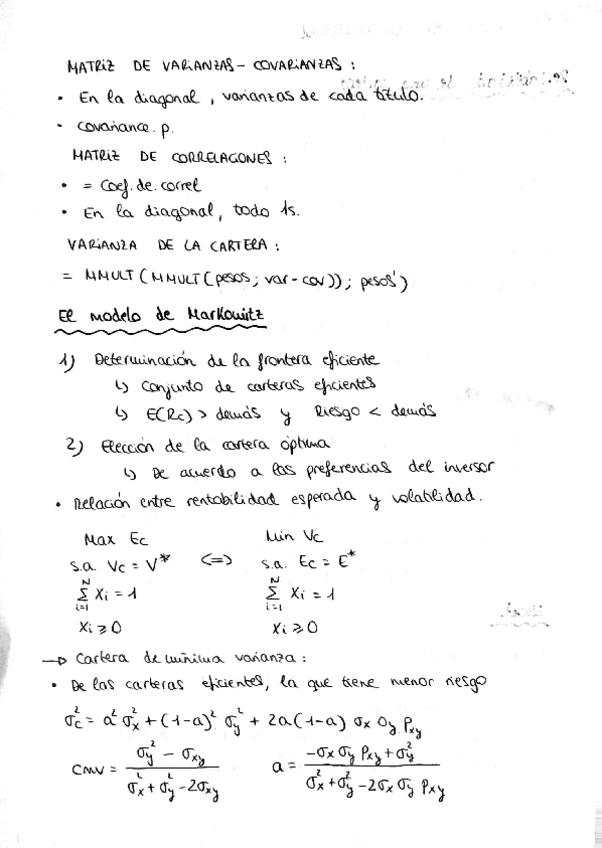 MATRIZ DE VARIANZAS - COVARIANZAS :
• En la diagonal, varianzas de cada título.
• covariance. p.
MATRIZ DE CORRELACIONES :
• = Coef. de. correl
• En la diagonal, todo 1s.
VARIANZA DE LA CARTERA :
= MMULT (MMULT (pesos; var-cov)); pesos')
El modelo de Markowitz
1) Determinación de la frontera eficiente
↳ Conjunto de carteras eficientes
↳ E(Rc) > demás y Riesgo < demás
2) Elección de la cartera óptima
↳ De acuerdo a las preferencias del inversor
• Relación entre rentabilidad esperada y volatilidad.
Max Ec Min Vc
s.a. Vc = V* <=> s.a. Ec = E*
N Σ i=1 Xi = 1 N Σ i=1 Xi = 1
Xi ≥ 0 Xi ≥ 0
→ Cartera de mínima varianza :
• De las carteras eficientes, la que tiene menor riesgo
σc² = a² σx² + (1-a)² σy² + 2a(1-a) σx σy ρxy
CMV = (σy² - σxy) / (σx² + σy² - 2σxy) a = (-σx σy ρxy + σy²) / (σx² + σy² - 2σx σy ρxy)